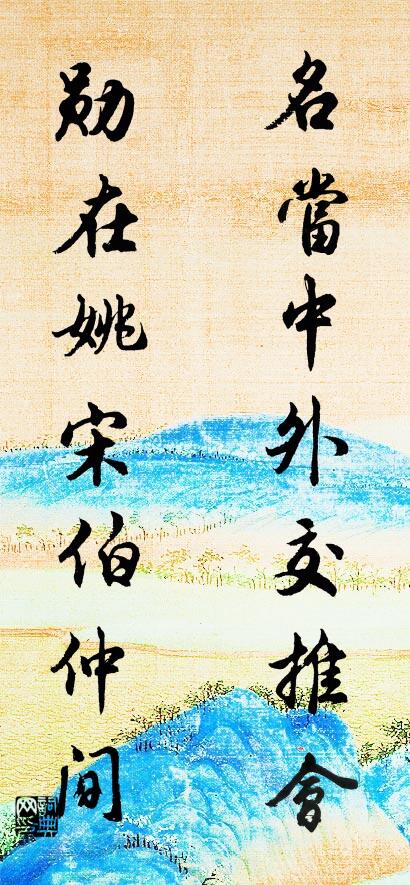 名當中外交推會
勋在姚宋伯仲间